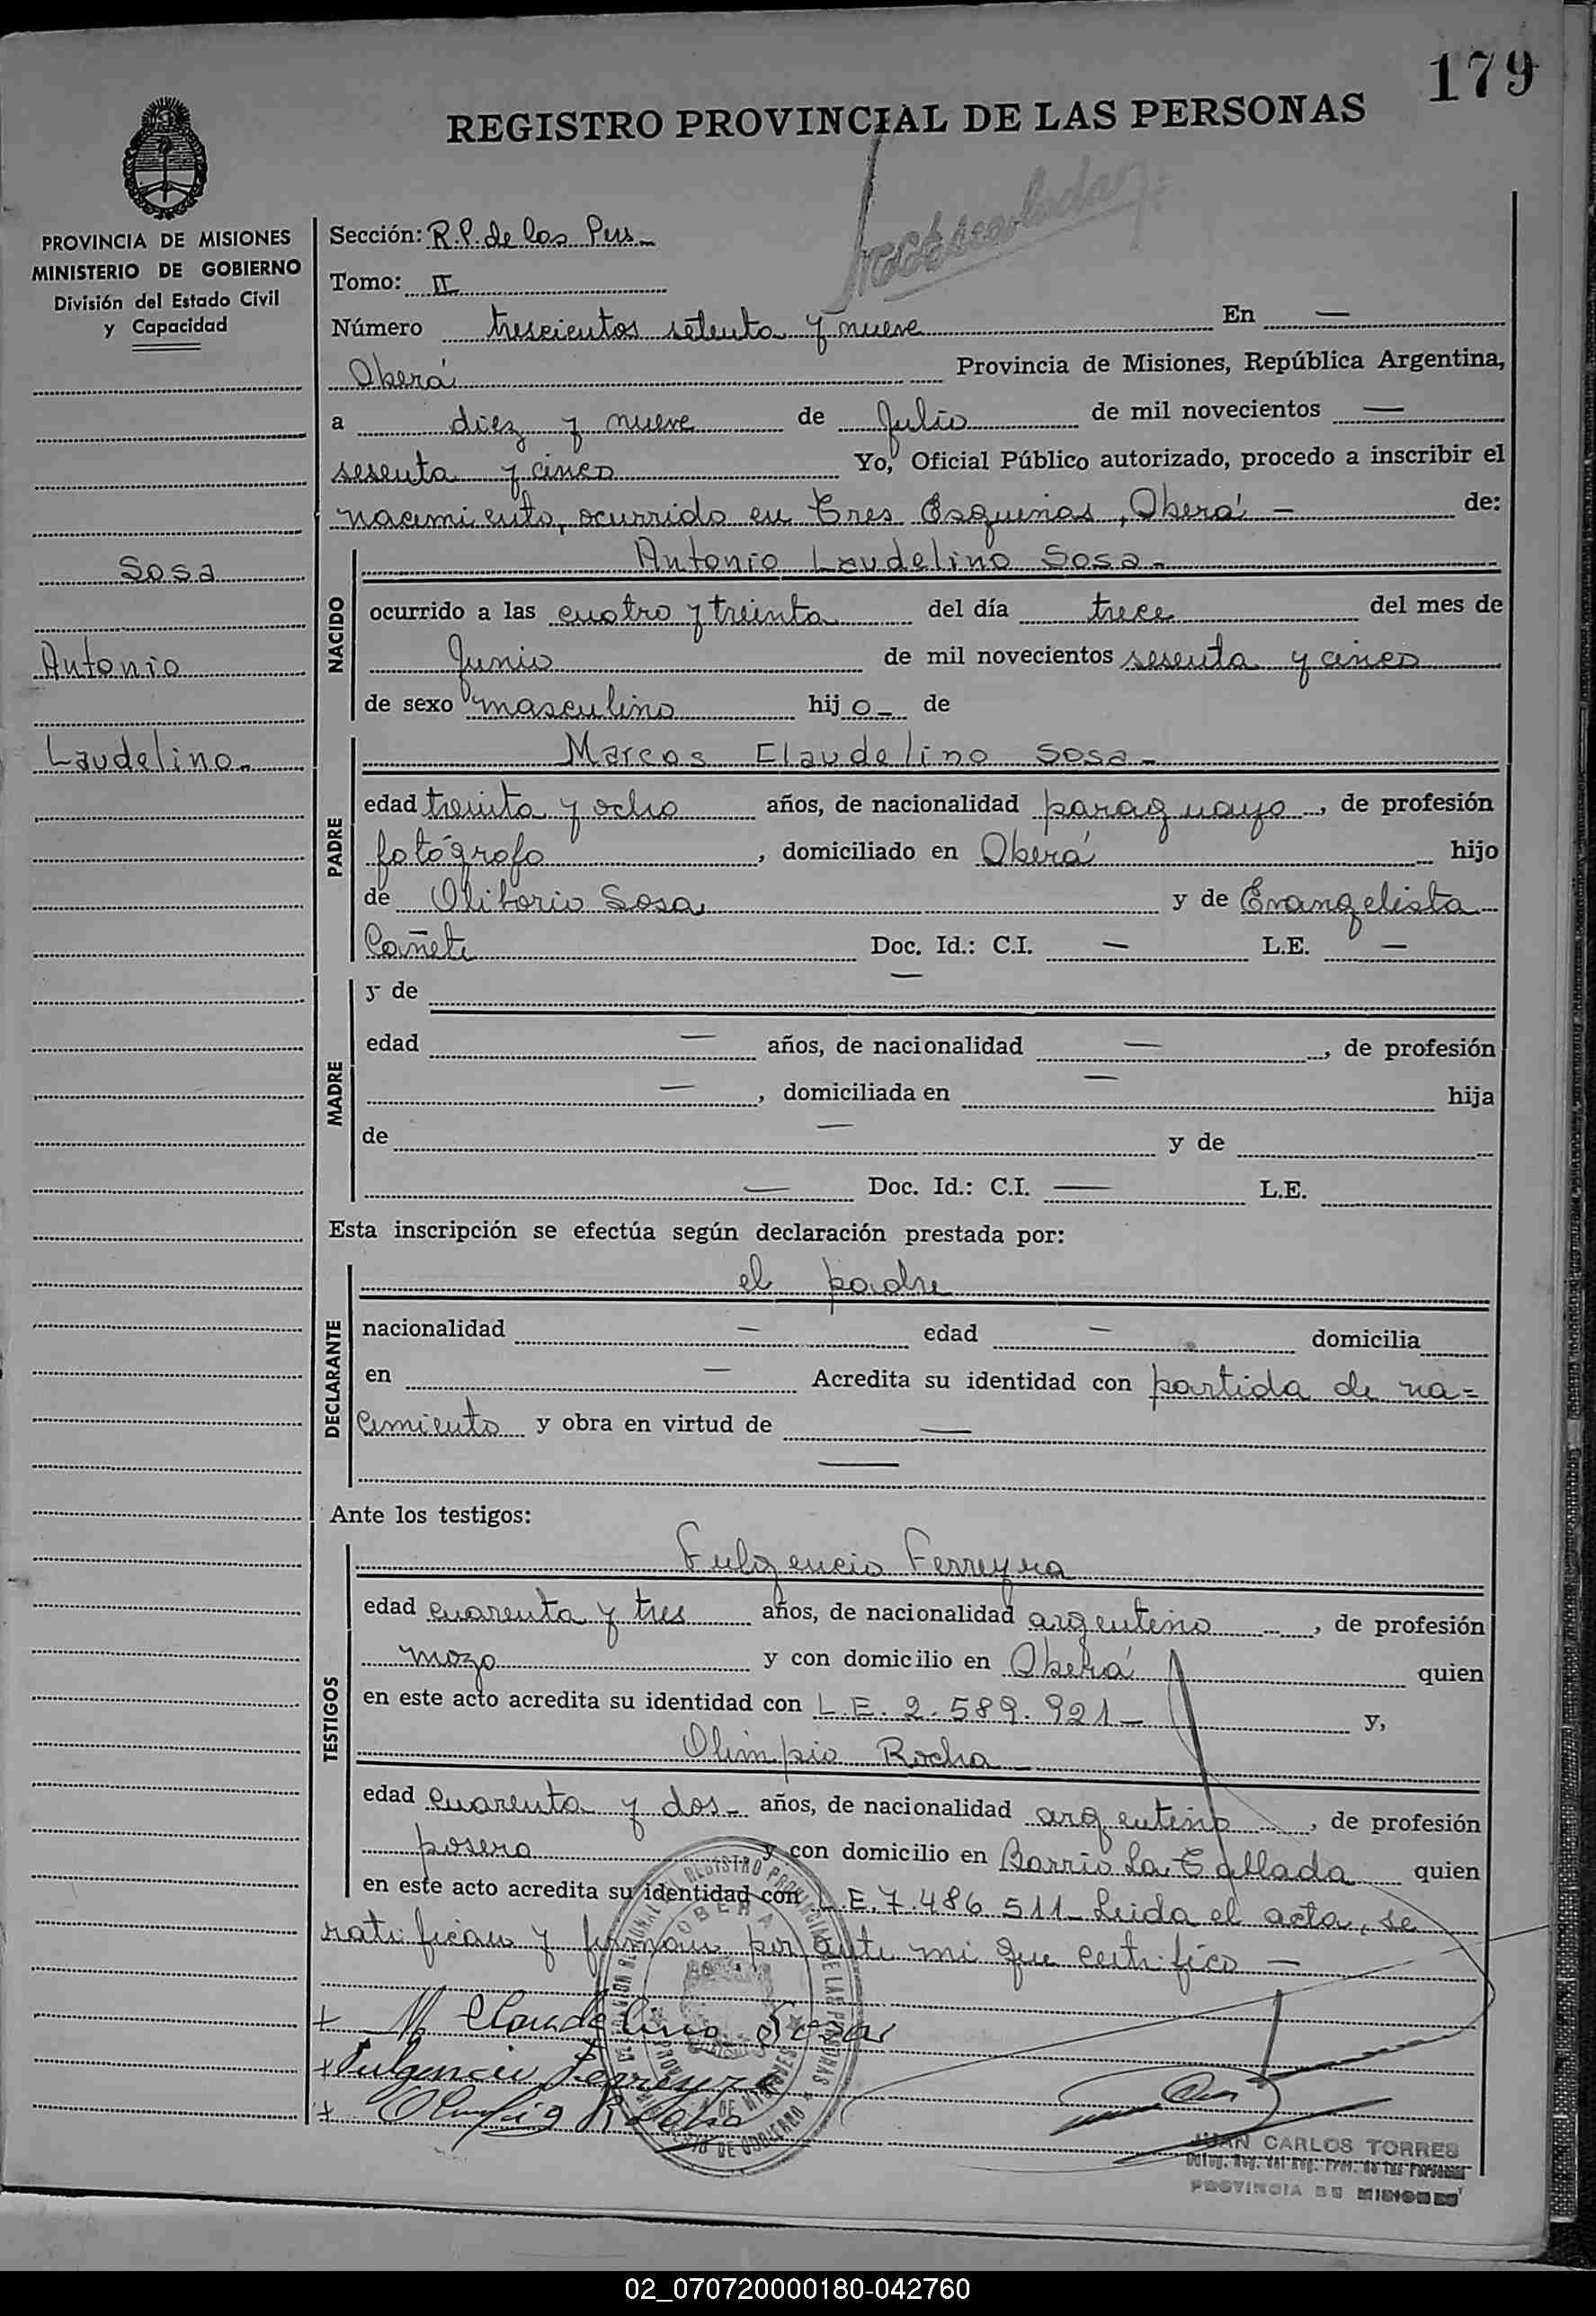 179
REGISTRO PROVINCIAL DE LAS PERSONAS
PROVINCIA DE MISIONES
MINISTERIO DE GOBIERNO
División del Estado Civil
y Capacidad
Sosa
Antonio
Laudelino.
Sección: R.P. de las Pers
Tomo: II
Número trescientos setenta y nueve En —
Oberá Provincia de Misiones, República Argentina,
a diez y nueve de Julio de mil novecientos —
sesenta y cinco Yo, Oficial Público autorizado, procedo a inscribir el
nacimiento, ocurrido en Tres Esquinas, Oberá — de:
NACIDO
Antonio Laudelino Sosa.
ocurrido a las cuatro y treinta del día trece del mes de
Junio de mil novecientos sesenta y cinco
de sexo masculino hijo — de
PADRE
Marcos Claudelino Sosa.
edad treinta y ocho años, de nacionalidad paraguayo, de profesión
fotógrafo, domiciliado en Oberá hijo
de Olitorio Sosa y de Evangelista
Cañete Doc. Id.: C.I. — L.E. —
MADRE
y de —
edad — años, de nacionalidad —, de profesión
—, domiciliada en — hija
de — y de
— Doc. Id.: C.I. — L.E.
Esta inscripción se efectúa según declaración prestada por:
DECLARANTE
el padre
nacionalidad — edad — domicilia
en — Acredita su identidad con partida de na=
cimiento y obra en virtud de —
—
Ante los testigos:
TESTIGOS
Fulgencio Ferreyra
edad cuarenta y tres años, de nacionalidad argentino, de profesión
mozo y con domicilio en Oberá quien
en este acto acredita su identidad con L.E. 2.589.921 — y,
Olimpio Rocha
edad cuarenta y dos — años, de nacionalidad argentino, de profesión
posero y con domicilio en Barrio La Tablada quien
en este acto acredita su identidad con L.E. 7.486.511 — Leida el acta, se
ratifican y firman por ante mi que certifico —
M Claudelino Sosa
Fulgencio Ferreyra
Olimpio Rocha
OBERA
JUAN CARLOS TORRES
PROVINCIA DE MISIONES
02_070720000180-042760